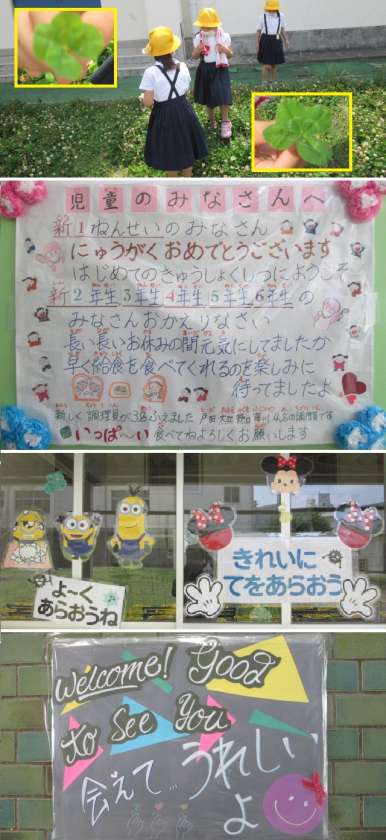 児童のみなさんへ
新1ねんせいのみなさん
にゅうがくおめでとうございます
はじめてのきゅうしょくしつにようこそ
新2年生3年生4年生5年生6年生の
みなさんおかえりなさい
長い長いお休みの間元気にしてましたか
早く給食を食べてくれるのを楽しみに
待ってましたよ
新しく調理員が3名ふえました
4名の調理員です
いっぱ〜い食べてねよろしくお願いします
よ〜く
あらおうね
きれいに
てをあらおう
Welcome! Good
to See You
会えて…うれしい
よ